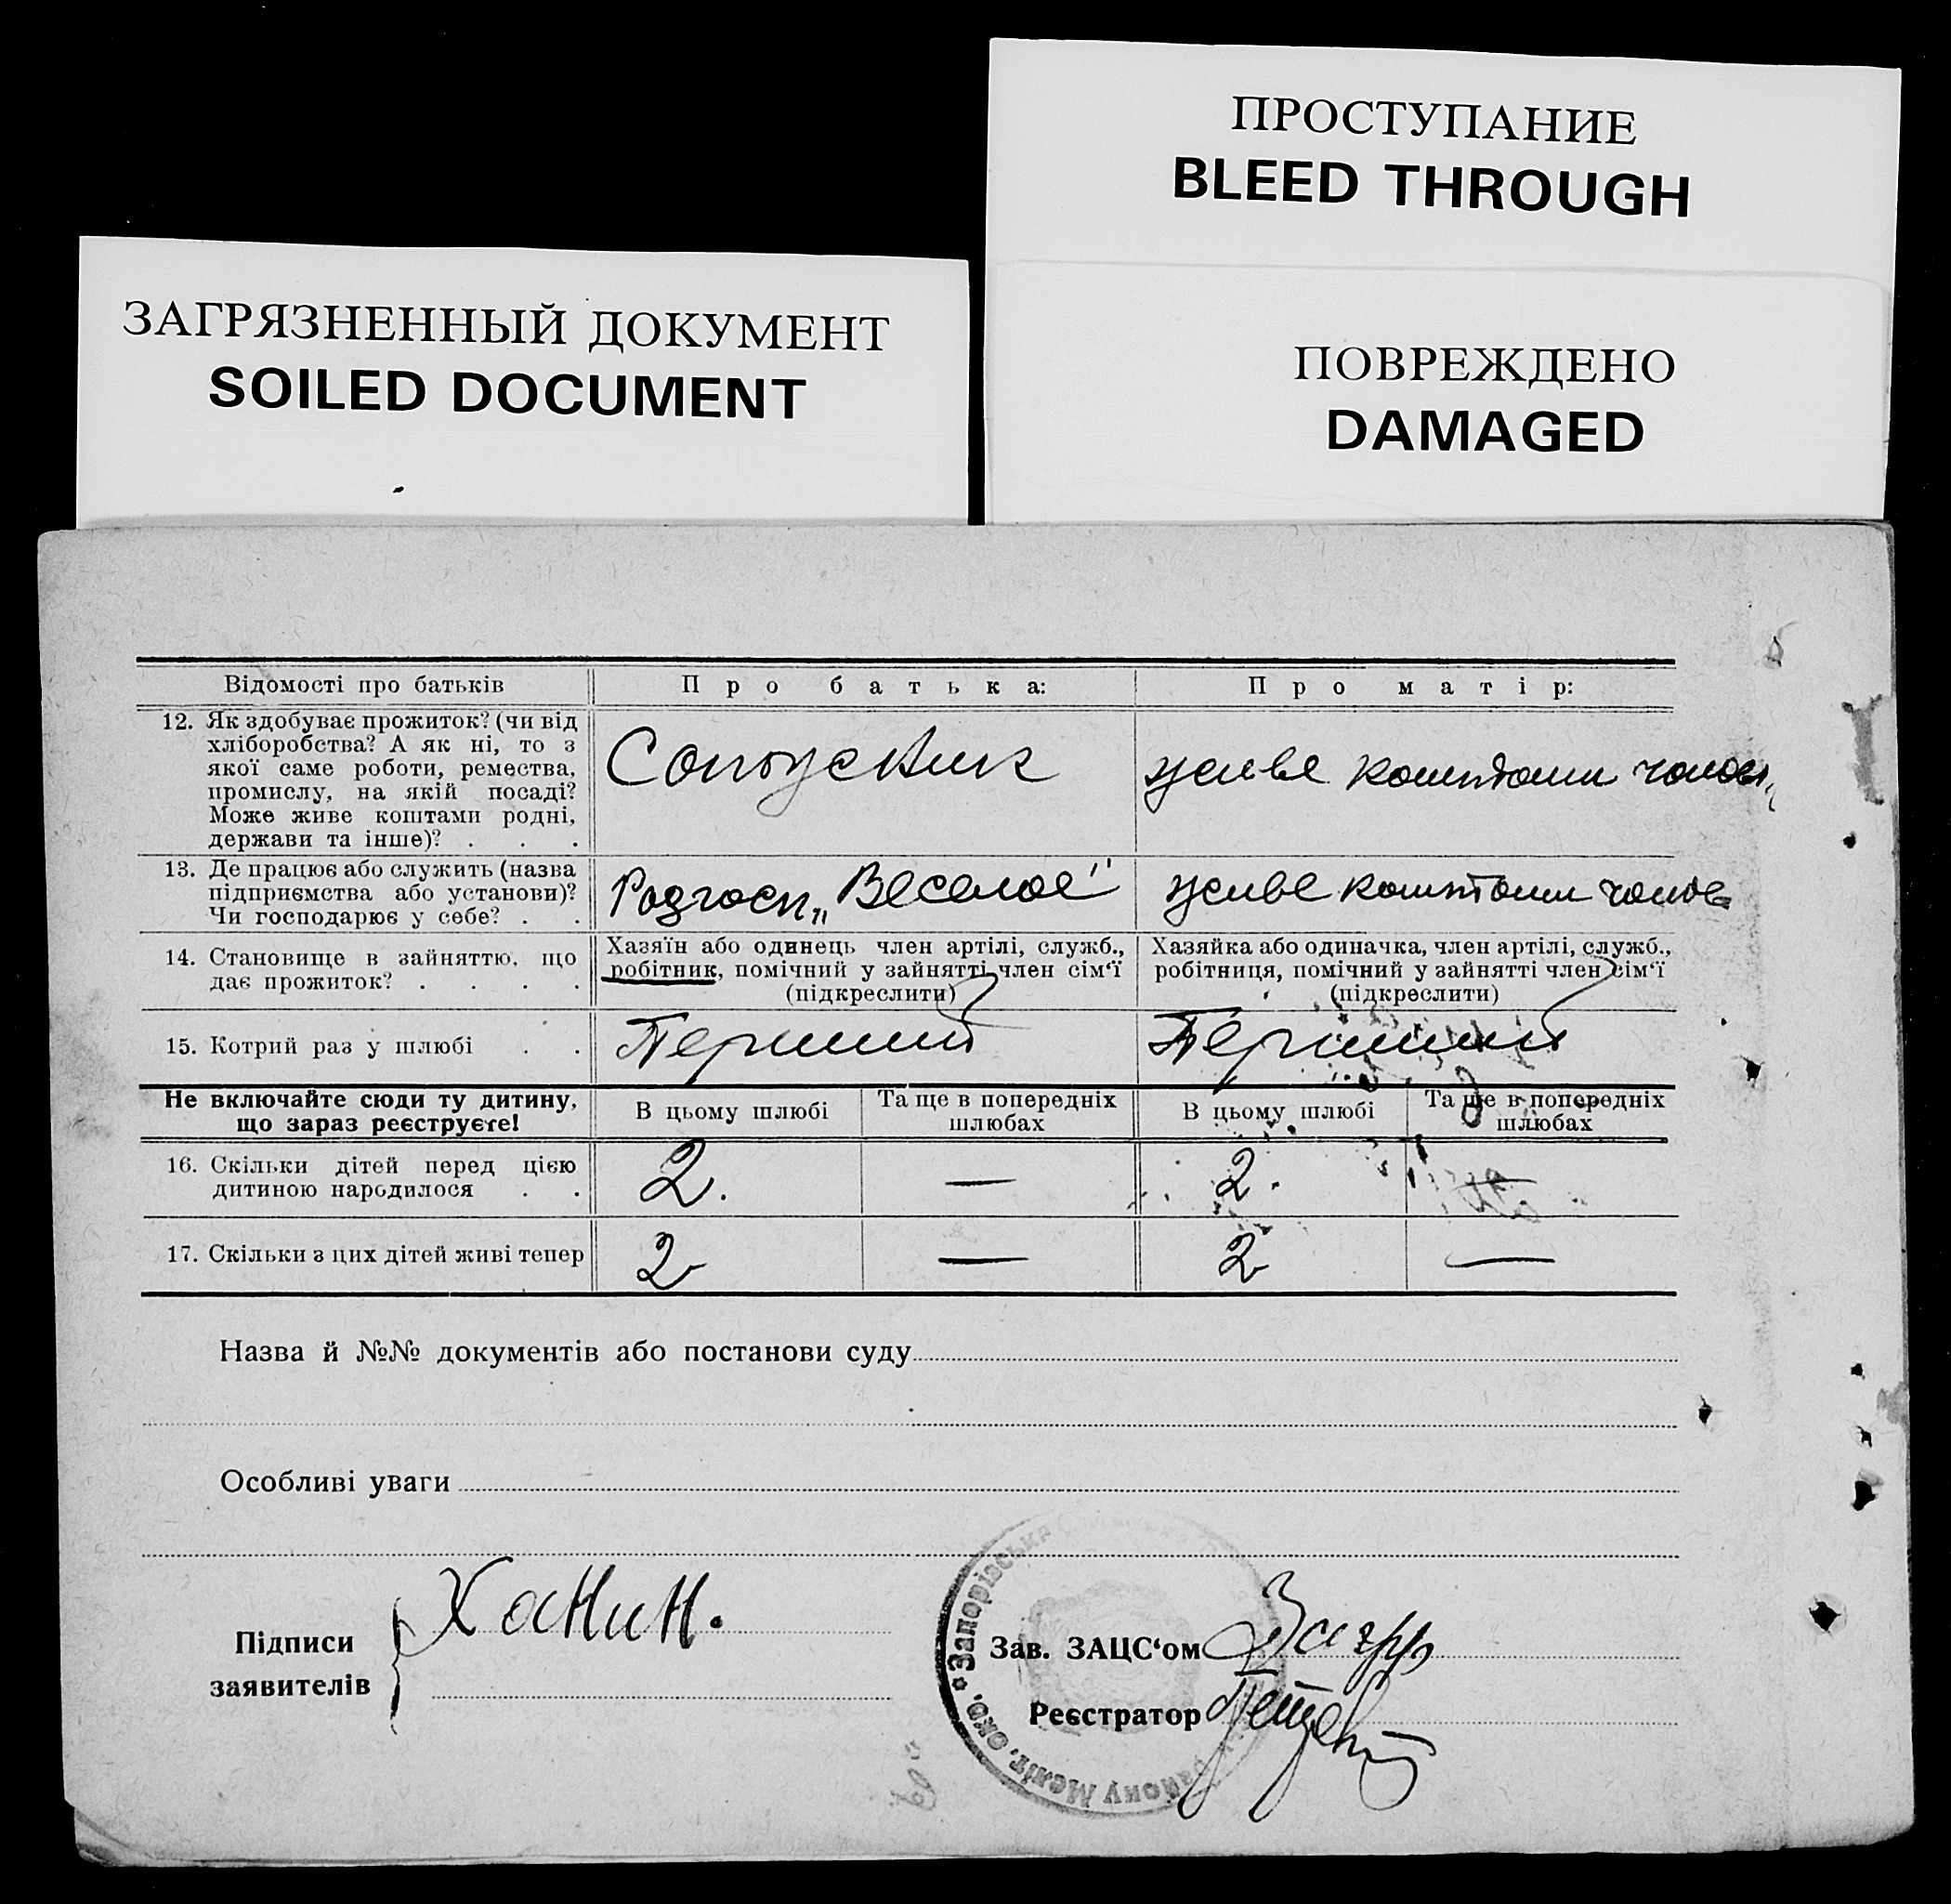 ПРОСТУПАНИЕ
BLEED THROUGH
ЗАГРЯЗНЕННЫЙ ДОКУМЕНТ
SOILED DOCUMENT
ПОВРЕЖДЕНО
DAMAGED
Відомості про батьків
Про батька:
Про матір:
12. Як здобуває прожиток? (чи від
хліборобства? А як ні, то з
якої саме роботи, ремества,
промислу, на якій посаді?
Може живе коштами родні,
держави та інше)? . . .
живе коштами
13. Де працює або служить (назва
підприємства або установи)?
Чи господарює у себе? . .
Радгосп „Веселое"
живе коштами
14. Становище в зайняттю, що
дає прожиток? . . . .
Хазяїн або одинець член артілі, служб.,
робітник, помічний у зайнятті член сім'ї
(підкреслити)
Хазяйка або одиначка, член артілі, служб.,
робітниця, помічний у зайнятті член сім'ї
(підкреслити)
15. Котрий раз у шлюбі . .
Перший
Перший
Не включайте сюди ту дитину,
що зараз реєструєте!
В цьому шлюбі
Та ще в попередніх
шлюбах
В цьому шлюбі
Та ще в попередніх
шлюбах
16. Скільки дітей перед цією
дитиною народилося . .
2.
—
2.
—
17. Скільки з цих дітей живі тепер
2
—
2
—
Назва й №№ документів або постанови суду
Особливі уваги
Підписи
заявителів
Ханин.
Зав. ЗАЦС'ом
Реєстратор
Запорізська
району Меліт. окр.